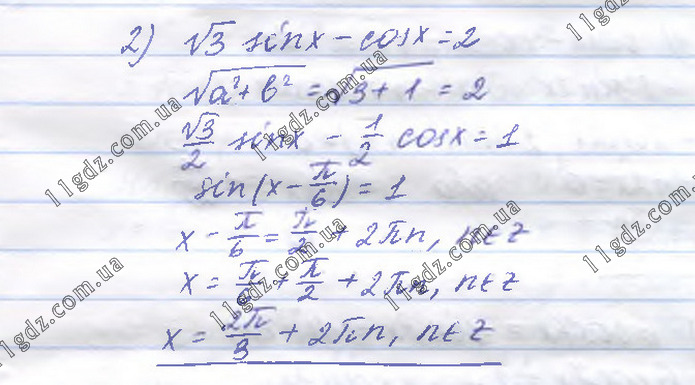 2) √3 sin x - cos x = 2
√a²+b² = √3+1 = 2
√3/2 sin x - 1/2 cos x = 1
sin(x - π/6) = 1
x - π/6 = π/2 + 2πn, n∈Z
x = π/6 + π/2 + 2πn, n∈Z
x = 2π/3 + 2πn, n∈Z
11gdz.com.ua
11gdz.com.ua
11gdz.com.ua
11gdz.com.ua
11gdz.com.ua
11gdz.com.ua